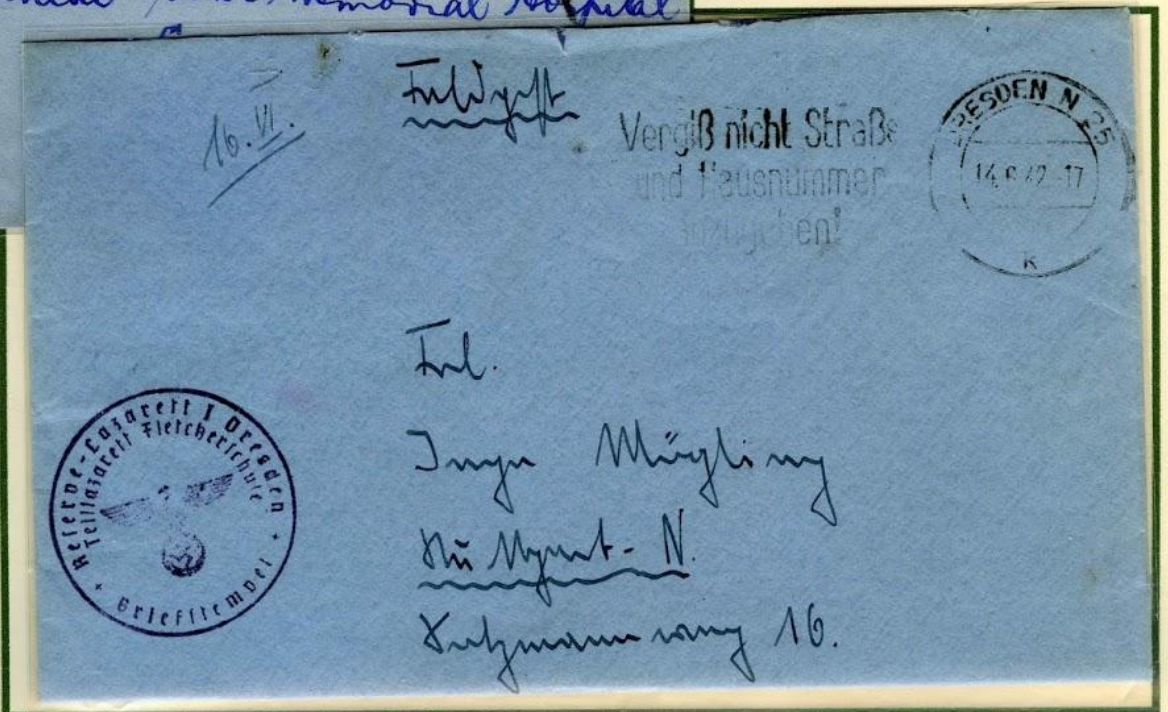 Memorial Hospital
16.VI.
Feldpost
Vergiß nicht Straße
und Hausnummer
anzugeben!
DRESDEN N 25
14.6.42-17
k
Frl.
Inge Mögling
Stuttgart-N.
Salzmannweg 16.
Reserve-Lazarett I Dresden
Teillazarett Fletcherschule
+ Briefstempel +